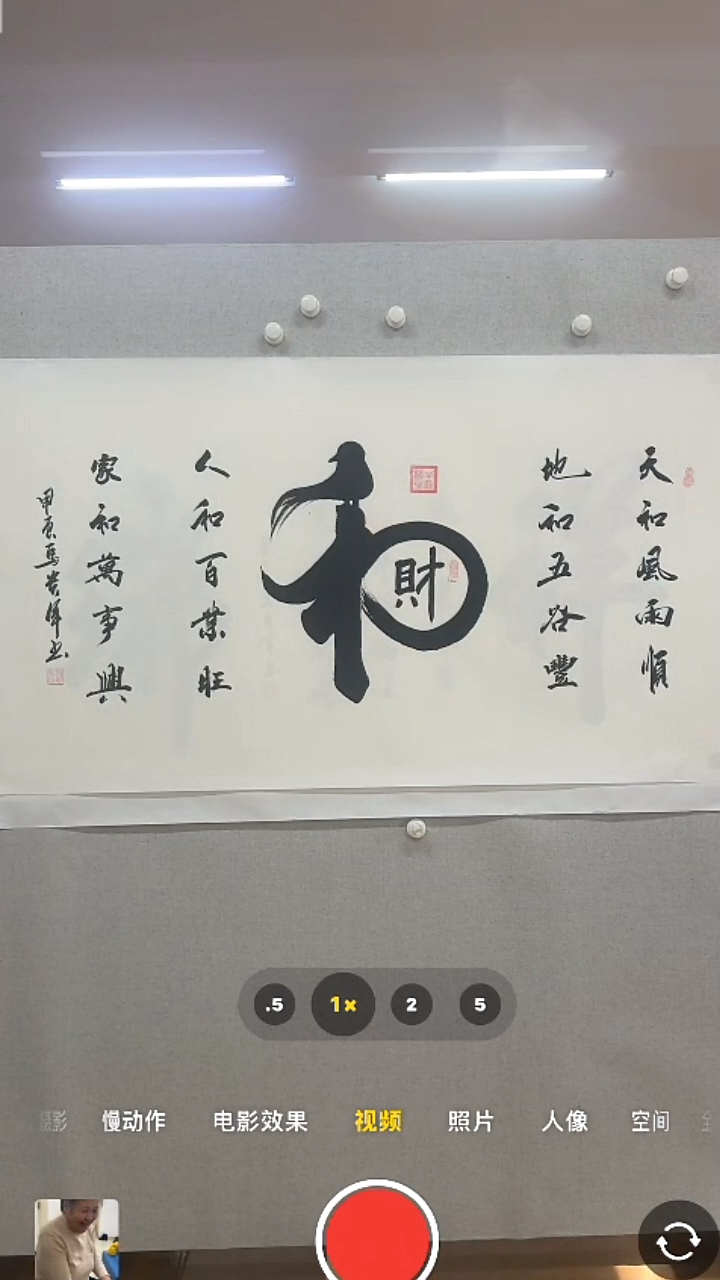 天和風雨順
地和五谷豐
和
財
人和百業旺
家和萬事興
.5 1× 2 5
慢动作 电影效果 视频 照片 人像 空间